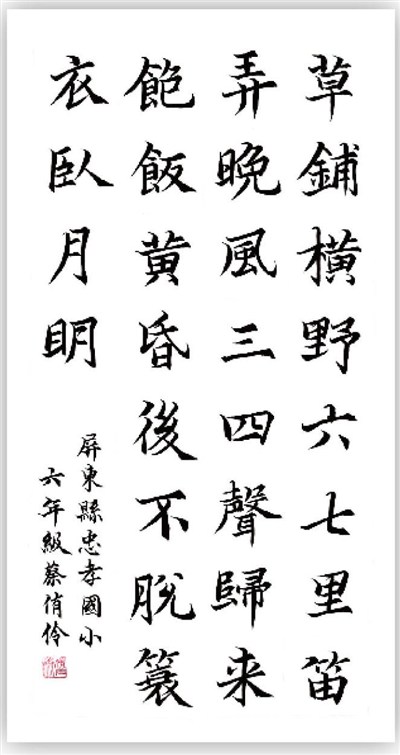 草鋪橫野六七里笛
弄晚風三四聲歸来
飽飯黄昏後不脫簑
衣臥月明
屏東縣忠孝國小
六年級蔡侑伶